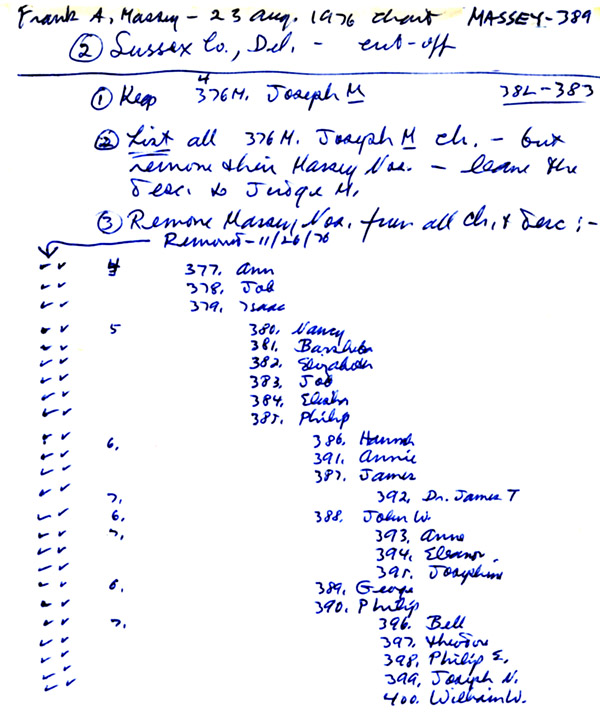 Frank A. Massey - 23 Aug. 1976 chart MASSEY-389
② Sussex Co., Del. - cut-off
① Keep 4 376M. Joseph M 382-383
② List all 376M. Joseph M ch. - but
remove their Massey Nos. - leave the
desc. to Judge M.
③ Remove Massey Nos. from all ch. & desc :-
Removed - 11/26/76
4 377. Ann
378. Job
379. Isaac
5 380. Nancy
381. Barsheba
382. Elizabeth
383. Job
384.
385. Philip
6. 386. Hannah
391. Annie
387. James
7. 392. Dr. James T
6. 388. John W.
7. 393. Anne
394. Eleanor.
395. Josephine
6. 389. George
390. Philip
7. 396. Bell
397. Theodore
398. Philip E.
399. Joseph N.
400. William W.